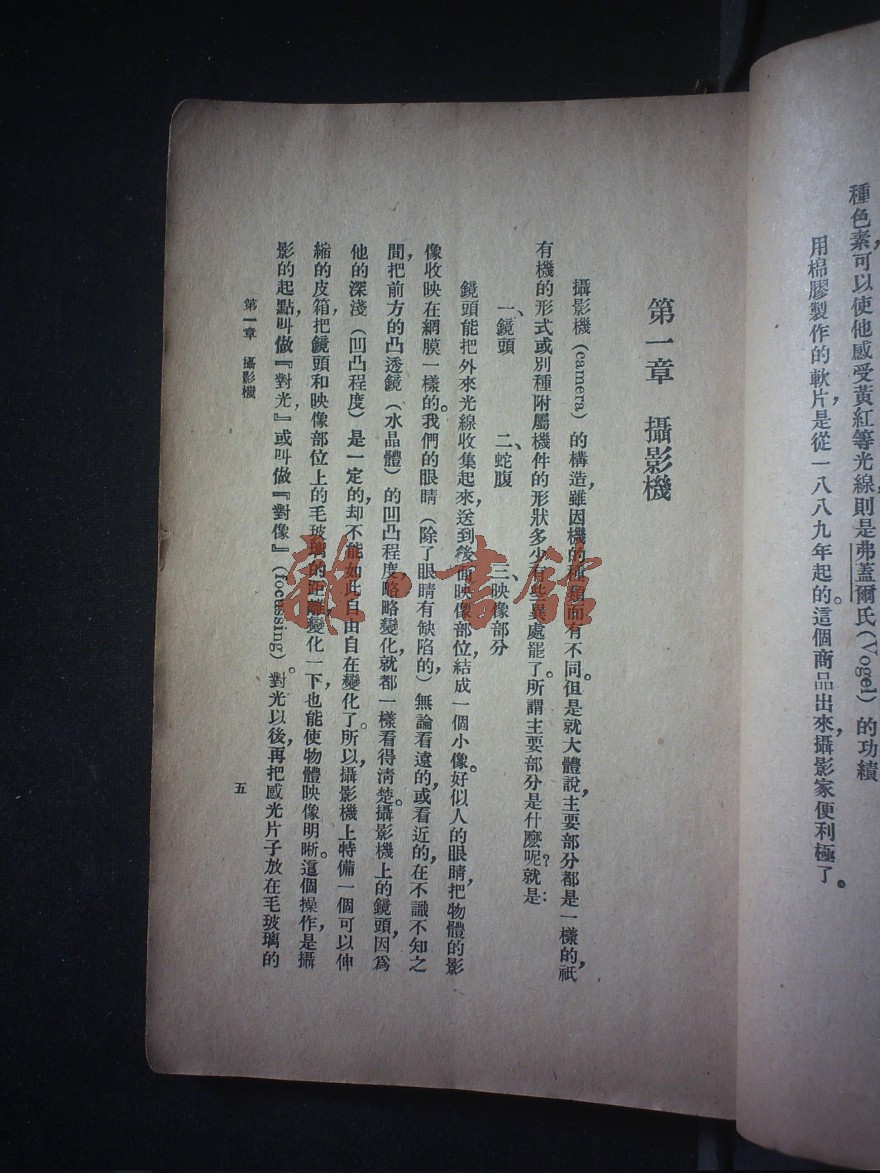 種色素可以使他感受黃紅等光線,則是弗蓋爾氏(Vogel)的功績
用棉膠製作的軟片,是從一八八九年起的。這個商品出來,攝影家便利極了。
第一章 攝影機
攝影機(camera)的構造,雖因機的種類而有不同。但是就大體說,主要部分都是一樣的,祇
有機的形式或別種附屬機件的形狀多少有些異處罷了。所謂主要部分是什麼呢?就是:
一、鏡頭 二、蛇腹 三、映像部分
鏡頭能把外來光線收集起來,送到後面映像部位,結成一個小像。好似人的眼睛,把物體的影
像收映在網膜一樣的。我們的眼睛(除了眼睛有缺陷的)無論看遠的,或看近的,在不識不知之
間,把前方的凸透鏡(水晶體)的凹凸程度略略變化,就都一樣看得清楚。攝影機上的鏡頭,因為
他的深淺(凹凸程度)是一定的,却不能如此自由自在變化了。所以,攝影機上特備一個可以伸
縮的皮箱,把鏡頭和映像部位上的毛玻璃的距離變化一下,也能使物體映像明晰。這個操作,是攝
影的起點,叫做『對光』或叫做『對像』(focussing)。對光以後,再把感光片子放在毛玻璃的
第一章 攝影機
五
雜·書館